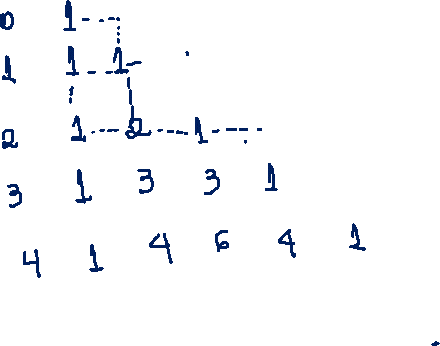 0 1
1 1 1
2 1 2 1
3 1 3 3 1
4 1 4 6 4 1